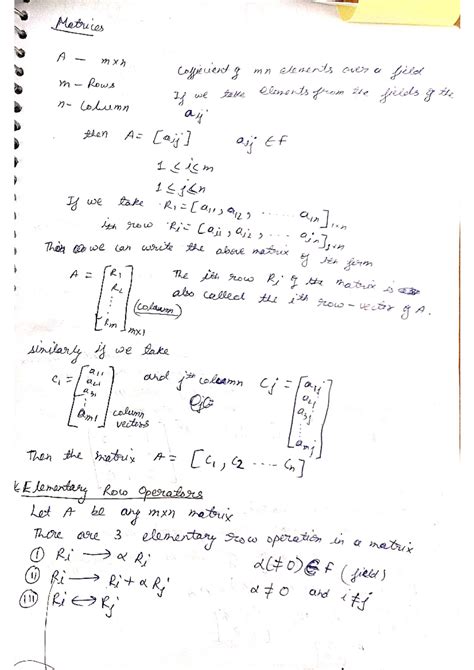 Matrices
A — m×n
Coefficient of mn elements over a field
m - Rows
If we take elements from the fields of the
n - Column
aij
then A = [aij] aij ∈ F
1 ≤ i ≤ m
1 ≤ j ≤ n
If we take R1 = [a11, a12, ...... a1n]1×n
ith row Ri = [ai1, ai2, ...... ain]1×n
Then we can write the above matrix of ith form
A = [R1 R2 ⋮ Rm]m×1 (column)
The ith row Ri of the matrix is
also called the ith row-vector of A.
similarly if we take
C1 = [a11 a21 a31 ⋮ am1] column vectors and jth column Cj = [a1j a2j a3j ⋮ amj]
Then the matrix A = [C1, C2 ---- Cn]
Elementary Row Operators
Let A be any m×n matrix
There are 3 elementary row operation in a matrix
(i) Ri → α Ri α(≠0) ∈ F (field)
(ii) Ri → Ri + α Rj α ≠ 0 and i ≠ j
(iii) Ri ↔ Rj